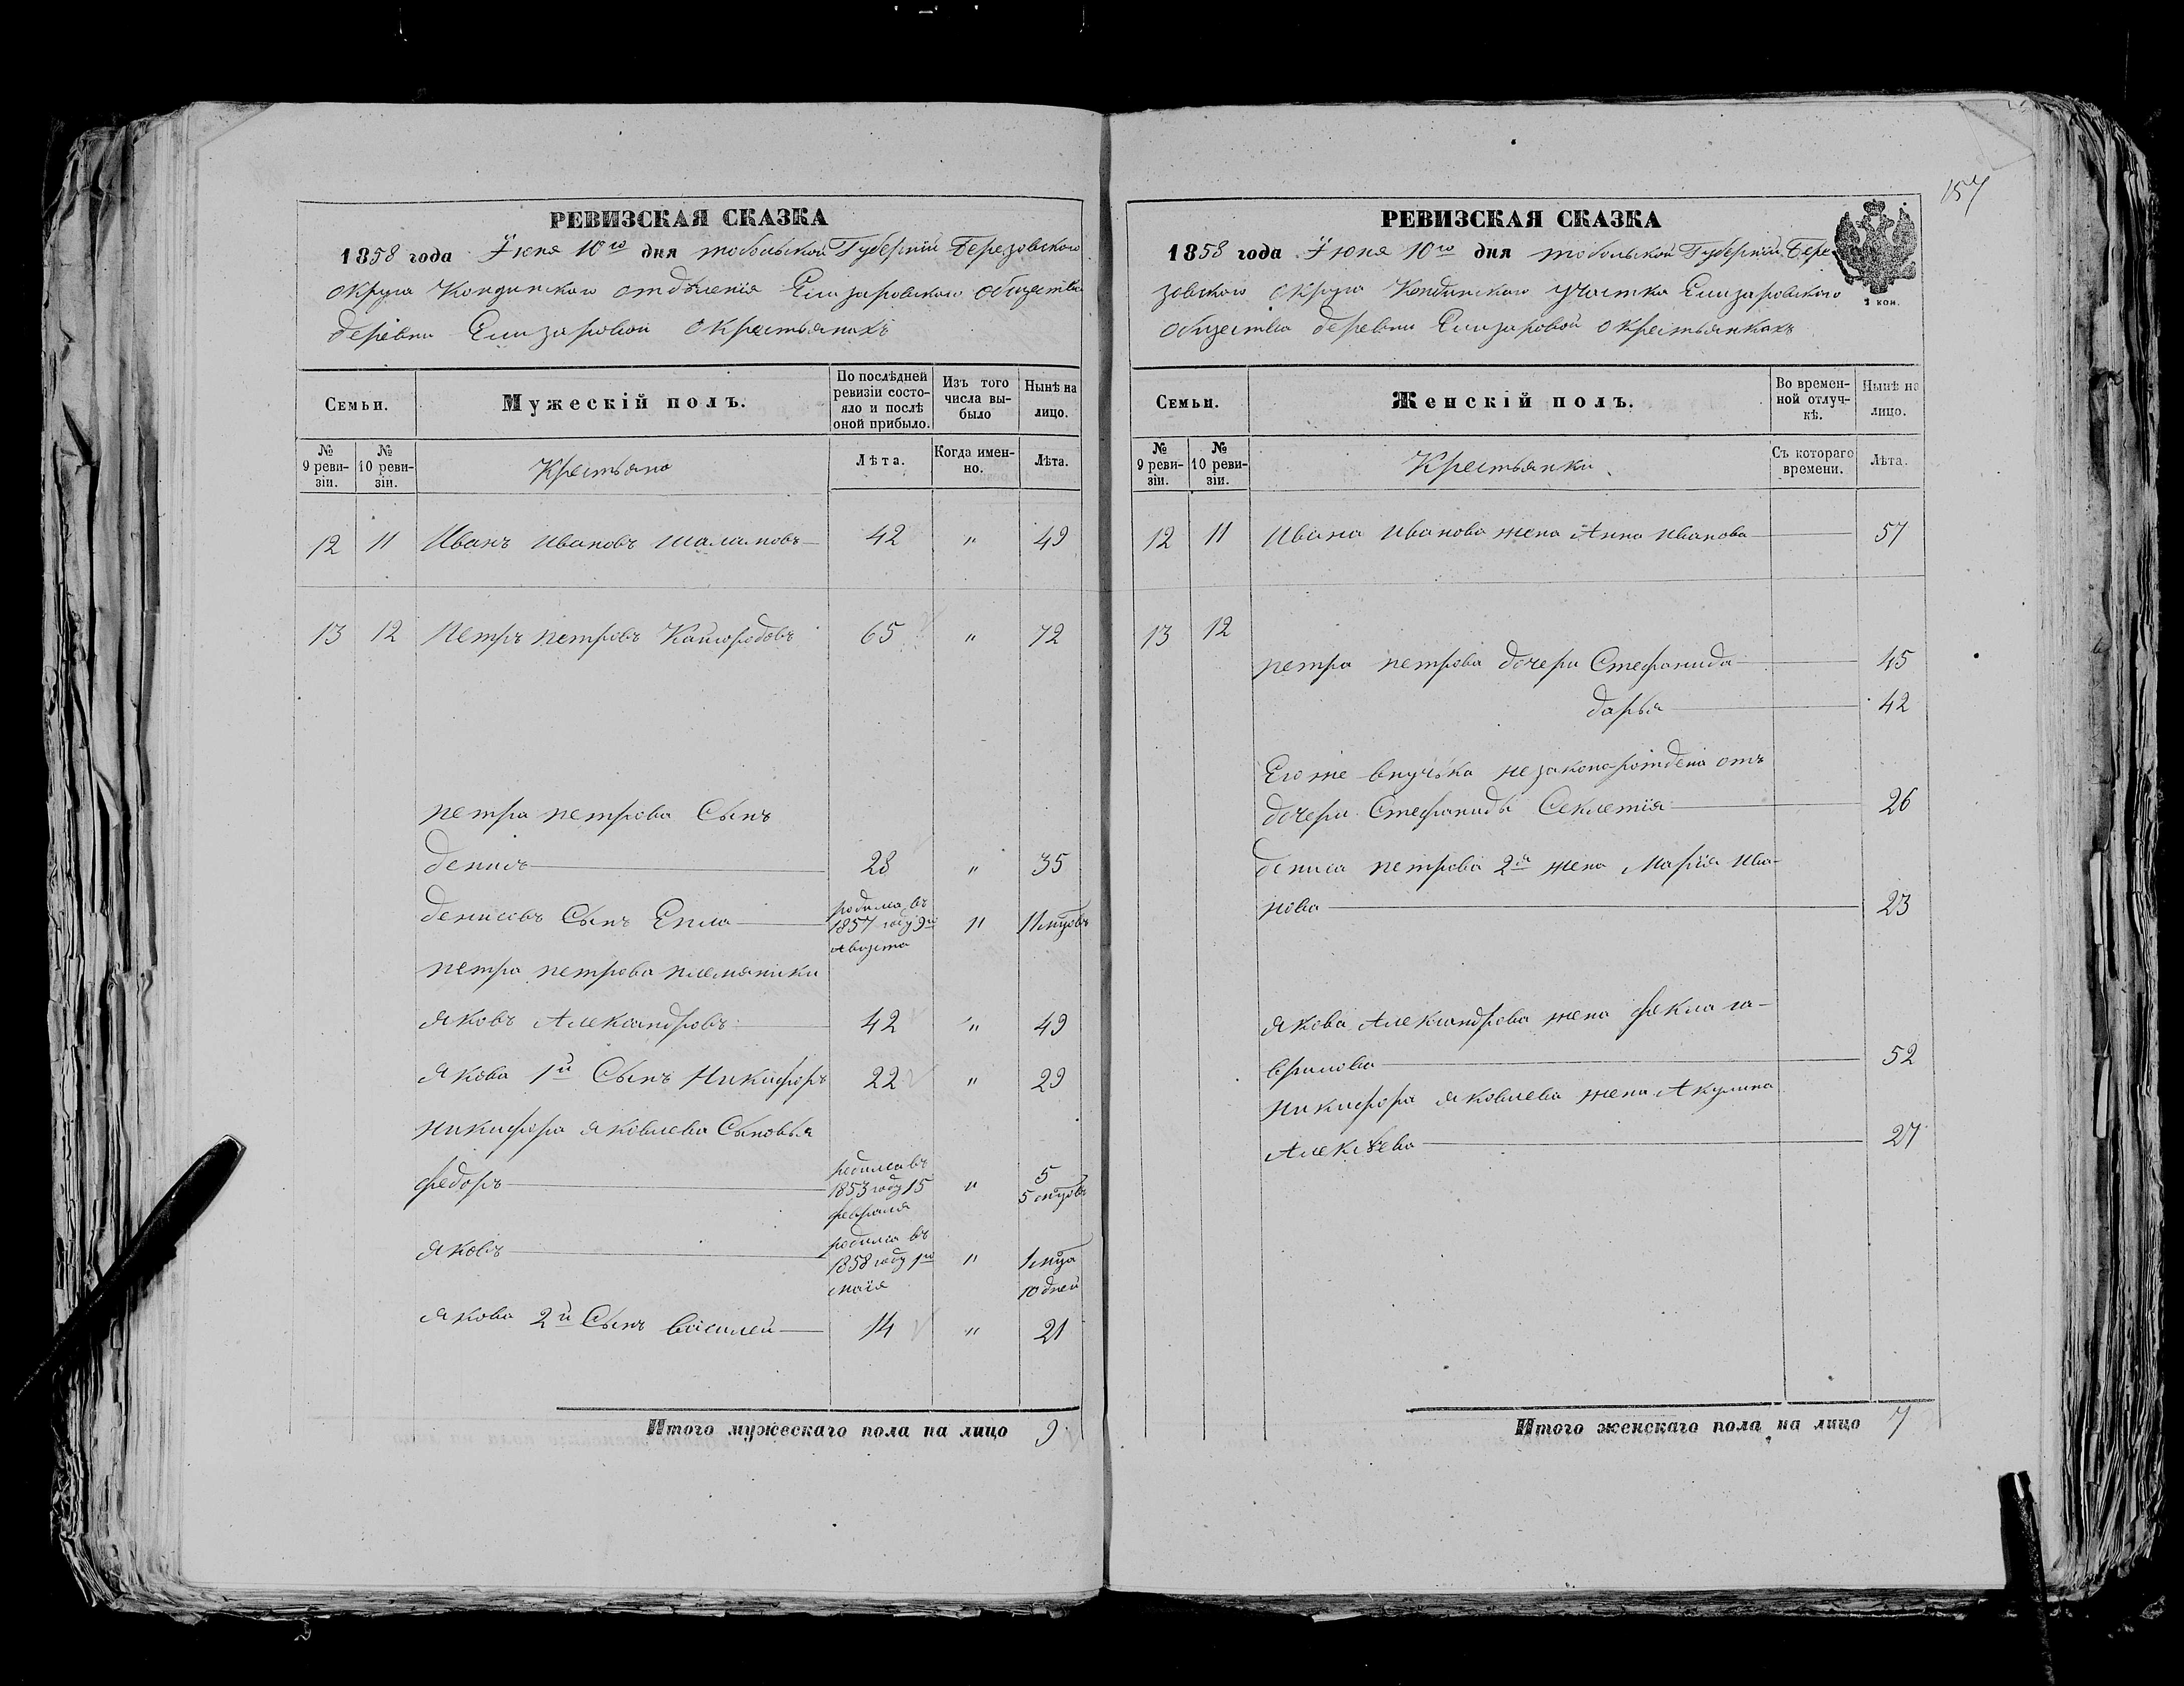 157
РЕВИЗСКАЯ СКАЗКА
1858 года Іюня 10го дня тобольской Губерніи Березовского
округа Кондинского отдѣленія Елизаровского общества
деревни Елизаровой о крестьянахъ
Семьи.
Мужескій полъ.
По послѣдней ревизіи состояло и послѣ оной прибыло.
Изъ того числа выбыло
Нынѣ на лицо.
№ 9 ревизіи.
№ 10 ревизіи.
Крестьяне
Лѣта.
Когда именно.
Лѣта.
12 11 Иванъ Ивановъ Шаламовъ 42 " 49
13 12 Петръ петровъ Кайгородовъ 65 " 72
петра петрова Сынъ
денисъ 28 " 35
денисовъ Сынъ Епла родился въ 1857 году 9го августа " 11 мцовъ
петра петрова племянники
Яковъ Александровъ 42 " 49
Якова 1й Сынъ Никифоръ 22 " 29
Никифора Яковлева Сыновья
федоръ родился въ 1853 году 15 февраля " 5 5 мцовъ
Яковъ родился въ 1858 году 1го маія " 1 мца 10 дней
Якова 2й Сынъ василей 14 " 21
Итого мужескаго пола на лицо 9
РЕВИЗСКАЯ СКАЗКА
1858 года Іюня 10го дня тобольской Губерніи Бере-
зовского округа Кондинского участка Елизаровского
общества деревни Елизаровой о крестьянкахъ
1 коп.
Семьи.
Женскій полъ.
Во временной отлучкѣ.
Нынѣ на лицо.
№ 9 ревизіи.
№ 10 ревизіи.
Крестьянки
Съ котораго времени.
Лѣта.
12 11 Ивана Иванова жена Анна Иванова 57
13 12
петра петрова дочери Стефанида 45
дарья 42
Его же внучька незаконорождена отъ
дочери Стефаниды Секлетія 26
дениса петрова 2я жена Марія Ива-
нова 23
Якова Александрова жена фекла га-
врилова 52
Никифора Яковлева жена Акулина
Алексѣева 27
Итого женскаго пола на лицо 7